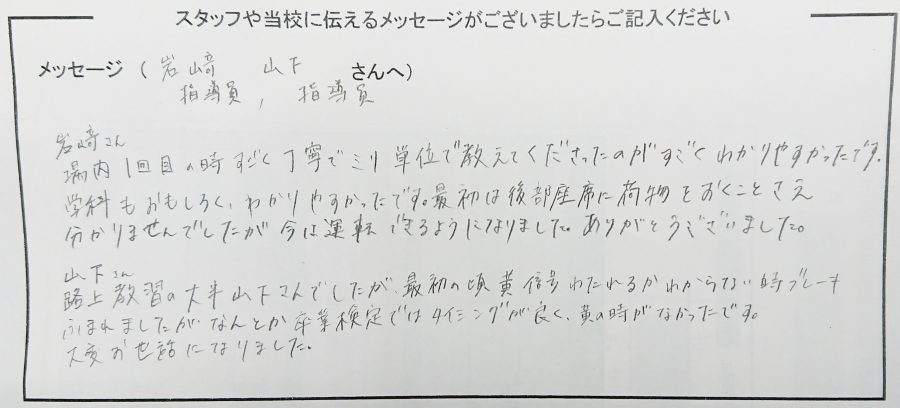 スタッフや当校に伝えるメッセージがございましたらご記入ください
メッセージ ( 岩﨑 山下 さんへ)
指導員, 指導員
岩﨑さん
場内1回目の時すごく丁寧でミリ単位で教えてくださったのがすごくわかりやすかったです。
学科もおもしろく、わかりやすかったです。最初は後部座席に荷物をおくことさえ
分かりませんでしたが今は運転できるようになりました。ありがとうございました。
山下さん
路上教習の大半山下さんでしたが、最初の頃黄信号わたれるかわからない時ブレーキ
ふまれましたがなんとか卒業検定ではタイミングが良く、黄の時がなかったです。
大変お世話になりました。